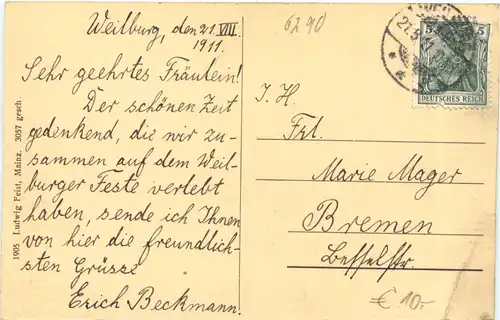 Weilburg, den 21. VIII.
1911.
Sehr geehrtes Fräulein!
Der schönen Zeit
gedenkend, die wir zu-
sammen auf dem Weil-
burger Feste verlebt
haben, sende ich Ihnen
von hier die freundlich-
sten Grüsse
Erich Beckmann.
1905 Ludwig Feist, Mainz. 3057 gesch.
6290
5 5
DEUTSCHES REICH
I. H.
Frl.
Marie Mager
Bremen
Besselstr.
€ 10.-